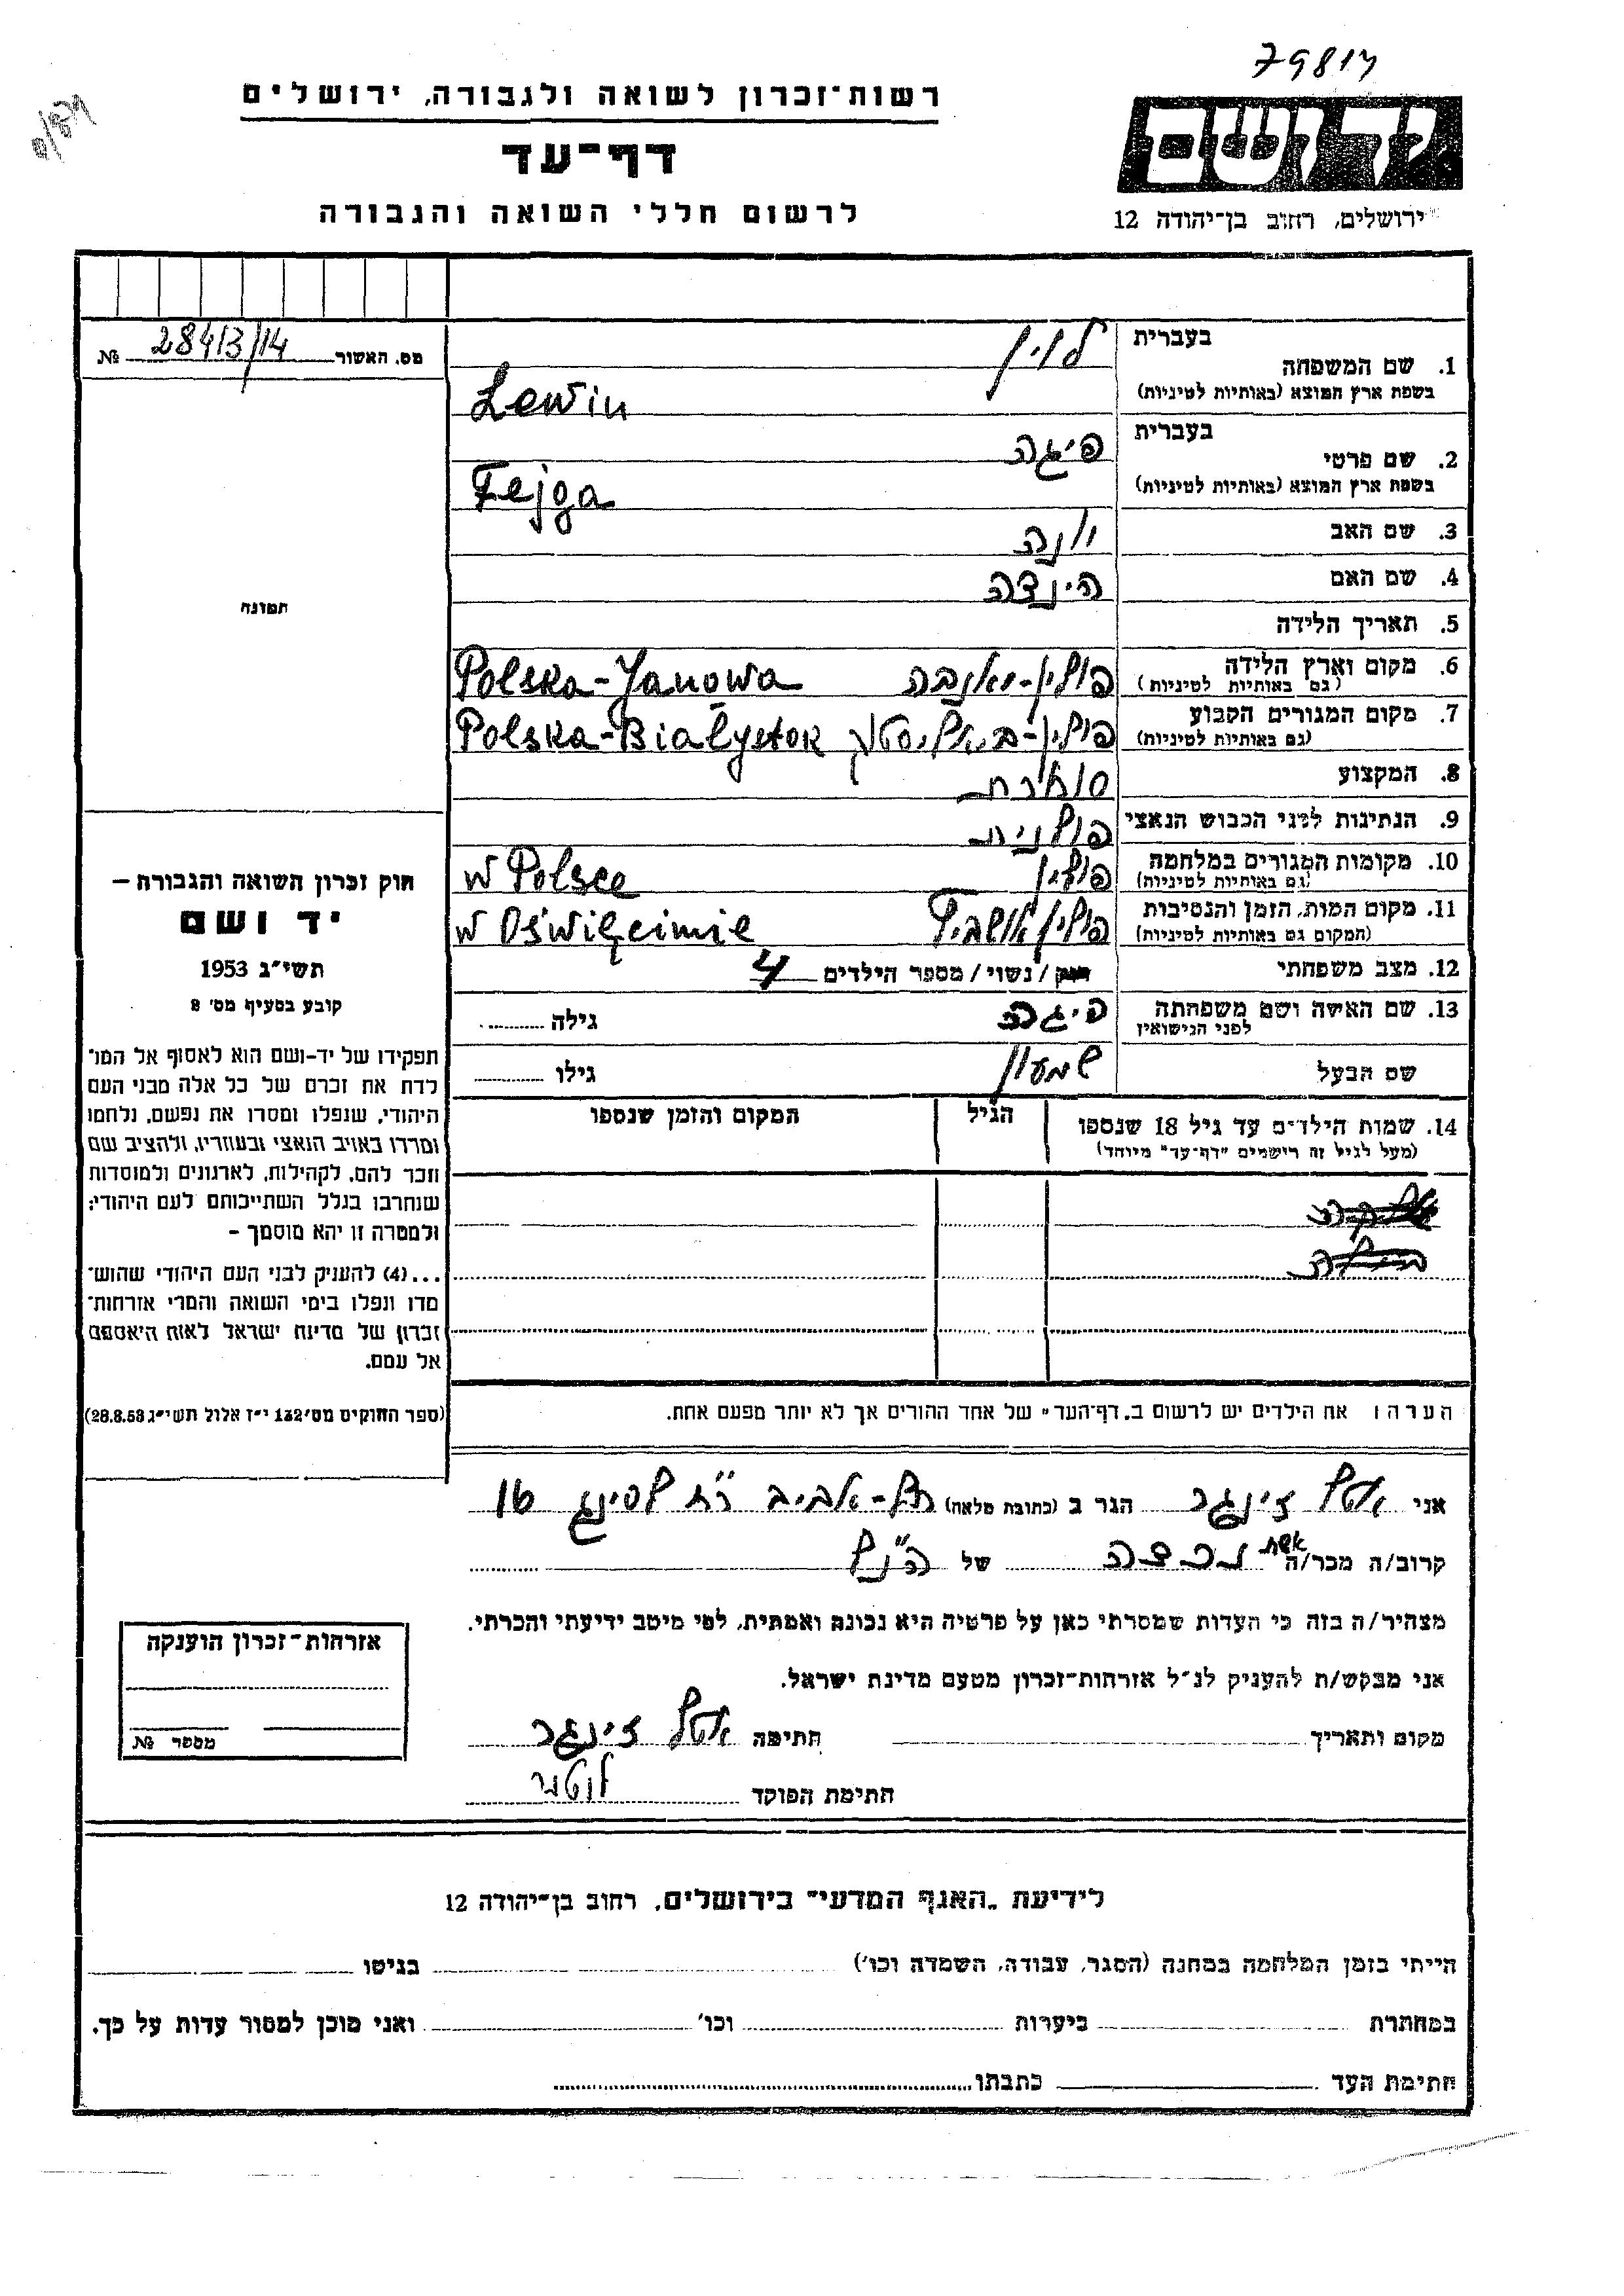 79814
רשות־זכרון לשואה ולגבורה, ירושלים
דף־עד
לרשום חללי השואה והגבורה
יד ושם
ירושלים, רחוב בן־יהודה 12
מס. האשור 28413/14 №
1. שם המשפחה
בעברית לוין
בשפת ארץ המוצא (באותיות לטיניות) Lewin
2. שם פרטי
בעברית פיגה
בשפת ארץ המוצא (באותיות לטיניות) Fejga
3. שם האב יונה
4. שם האם הינדה
5. תאריך הלידה
6. מקום וארץ הלידה פולין-יאנבה Polska-Janowa
(גם באותיות לטיניות)
7. מקום המגורים הקבוע פולין-ביאליסטק Polska-Białystok
(גם באותיות לטיניות)
8. המקצוע סוחרת
9. הנתינות לפני הכבוש הנאצי פולנית
10. מקומות המגורים במלחמה פולין w Polsce
(גם באותיות לטיניות)
11. מקום המות, הזמן והנסיבות פולין אושביץ w Oświęcimie
(המקום גם באותיות לטיניות)
12. מצב משפחתי רוק / נשוי / מספר הילדים 4
13. שם האישה ושם משפחתה פיגה גילה
לפני הנישואין
שם הבעל שמעון גילו
14. שמות הילדים עד גיל 18 שנספו הגיל המקום והזמן שנספו
(מעל לגיל זה רישמים "דף־עד" מיוחד)
בילה
הערה: את הילדים יש לרשום ב"דף־העד" של אחד ההורים אך לא יותר מפעם אחת.
תמונה
חוק זכרון השואה והגבורה –
יד ושם
תשי"ג 1953
קובע בסעיף מס' 8
תפקידו של יד-ושם הוא לאסוף אל המו־
לדת את זכרם של כל אלה מבני העם
היהודי, שנפלו ומסרו את נפשם, נלחמו
ומרדו באויב הנאצי ובעוזריו, ולהציב שם
וזכר להם, לקהילות, לארגונים ולמוסדות
שנחרבו בגלל השתייכותם לעם היהודי;
ולמטרה זו יהא מוסמך –
...(4) להעניק לבני העם היהודי שהוש־
מדו ונפלו בימי השואה והמרי אזרחות־
זכרון של מדינת ישראל לאות היאספם
אל עמם.
(ספר החוקים מס' 132 י"ז אלול תשי"ג 28.8.53)
אני אטל זינגר הגר ב (כתובת מלאה) תל-אביב רח' לסינג 10
קרוב/ה מכר/ה אשת נכדה של הנ"ל
מצהיר/ה בזה כי העדות שמסרתי כאן על פרטיה היא נכונה ואמתית, לפי מיטב ידיעתי והכרתי.
אני מבקש/ת להעניק לנ"ל אזרחות־זכרון מטעם מדינת ישראל.
מקום ותאריך חתימה אטל זינגר
חתימת הפוקד
אזרחות־זכרון הוענקה
מספר №
לידיעת "האגף המדעי" בירושלים, רחוב בן־יהודה 12
הייתי בזמן המלחמה במחנה (הסגר, עבודה, השמדה וכו') בגיטו
במחתרת ביערות וכו' ואני מוכן למסור עדות על כך.
חתימת העד כתבתו